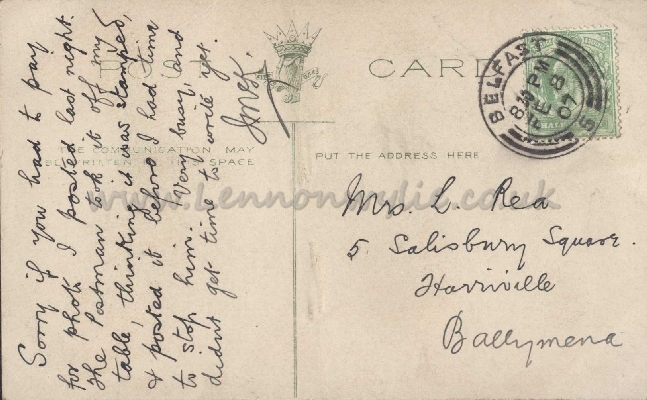 Sorry if you had to pay
for photo I posted last night.
The Postman took it off my
table, thinking it was stamped,
& posted it before I had time
to stop him. Very busy, and
didnt get time to write yet.
POST CARD
THE COMMUNICATION MAY
BE WRITTEN IN THIS SPACE
PUT THE ADDRESS HERE
BELFAST
8 15 PM
FE 8
07
S
Mrs. L. Rea
5 Salisbury Square.
Harriville
Ballymena